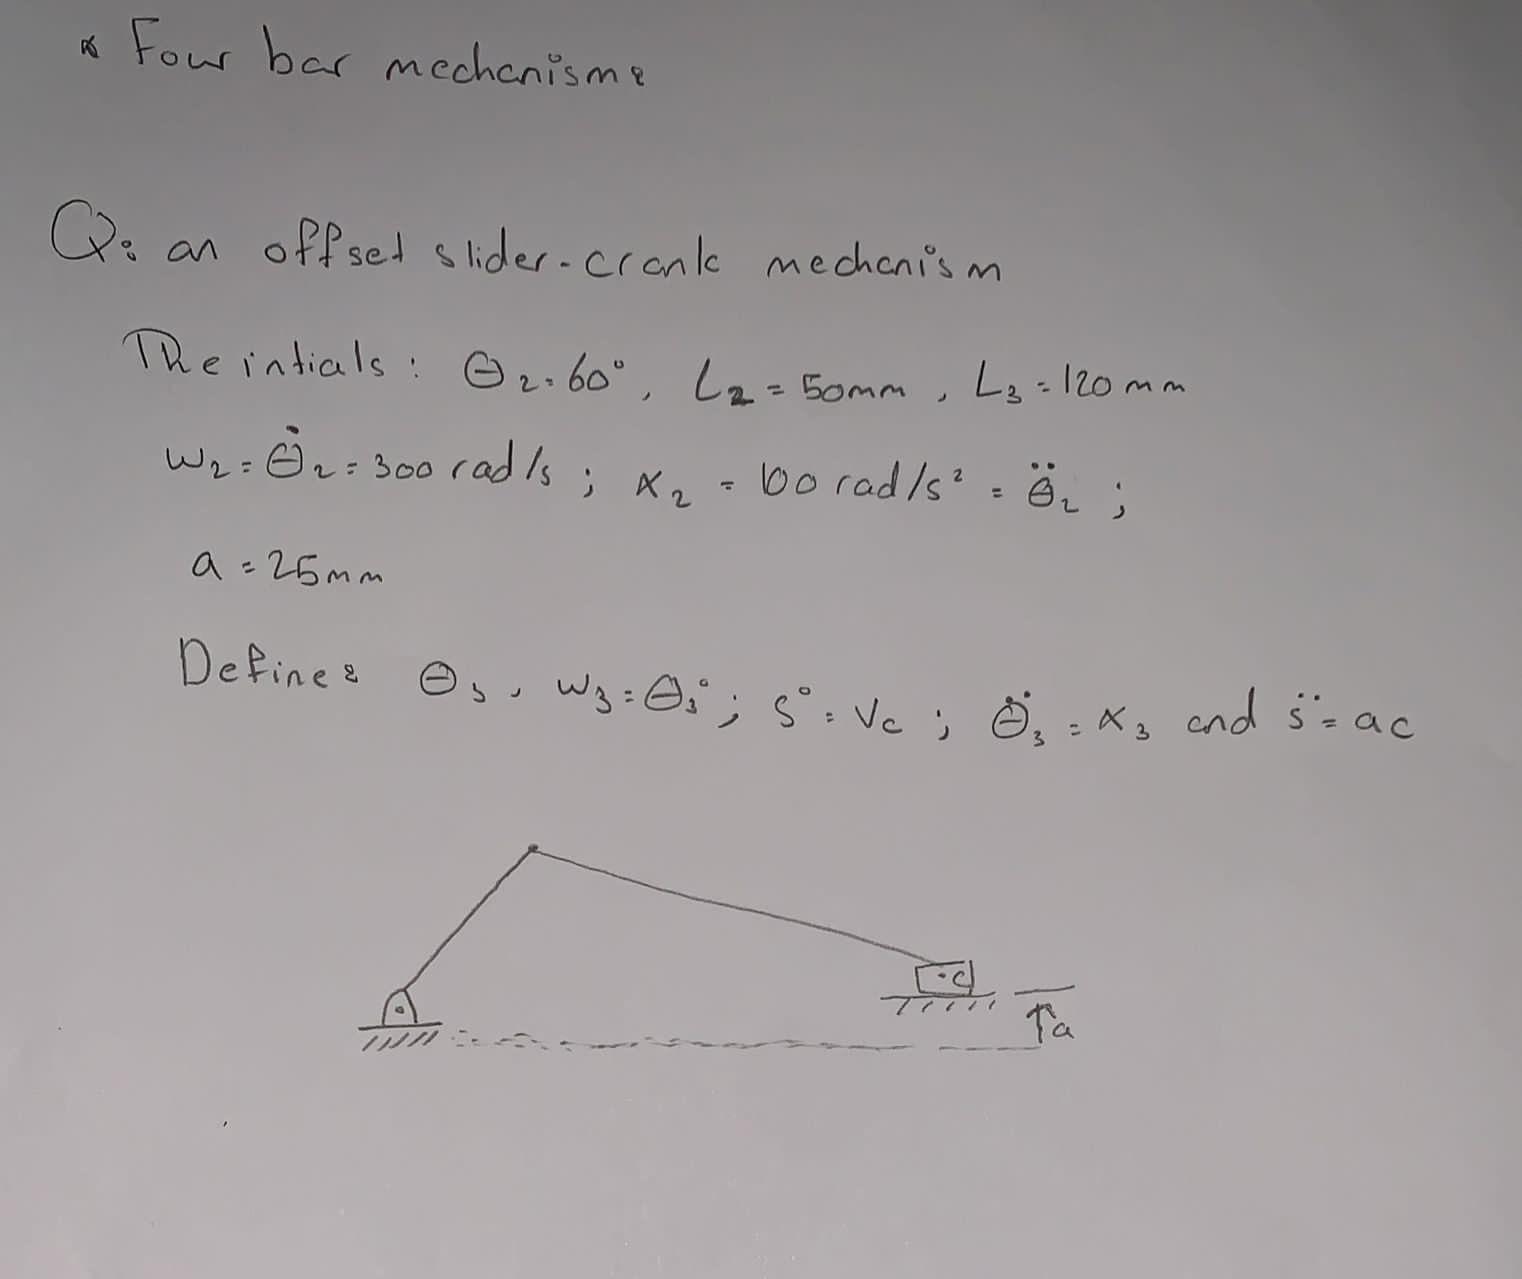 * Four bar mechanism:
Q: an offset slider-crank mechanism
The intials: θ2 = 60°, L2 = 50mm, L3 = 120mm
w2 = θ̇2 = 300 rad/s ; α2 = 100 rad/s² = θ̈2 ;
a = 25mm
Define: θ3, w3 = θ̇3 ; ṡ = Vc ; θ̈3 = α3 and s̈ = ac
c
a